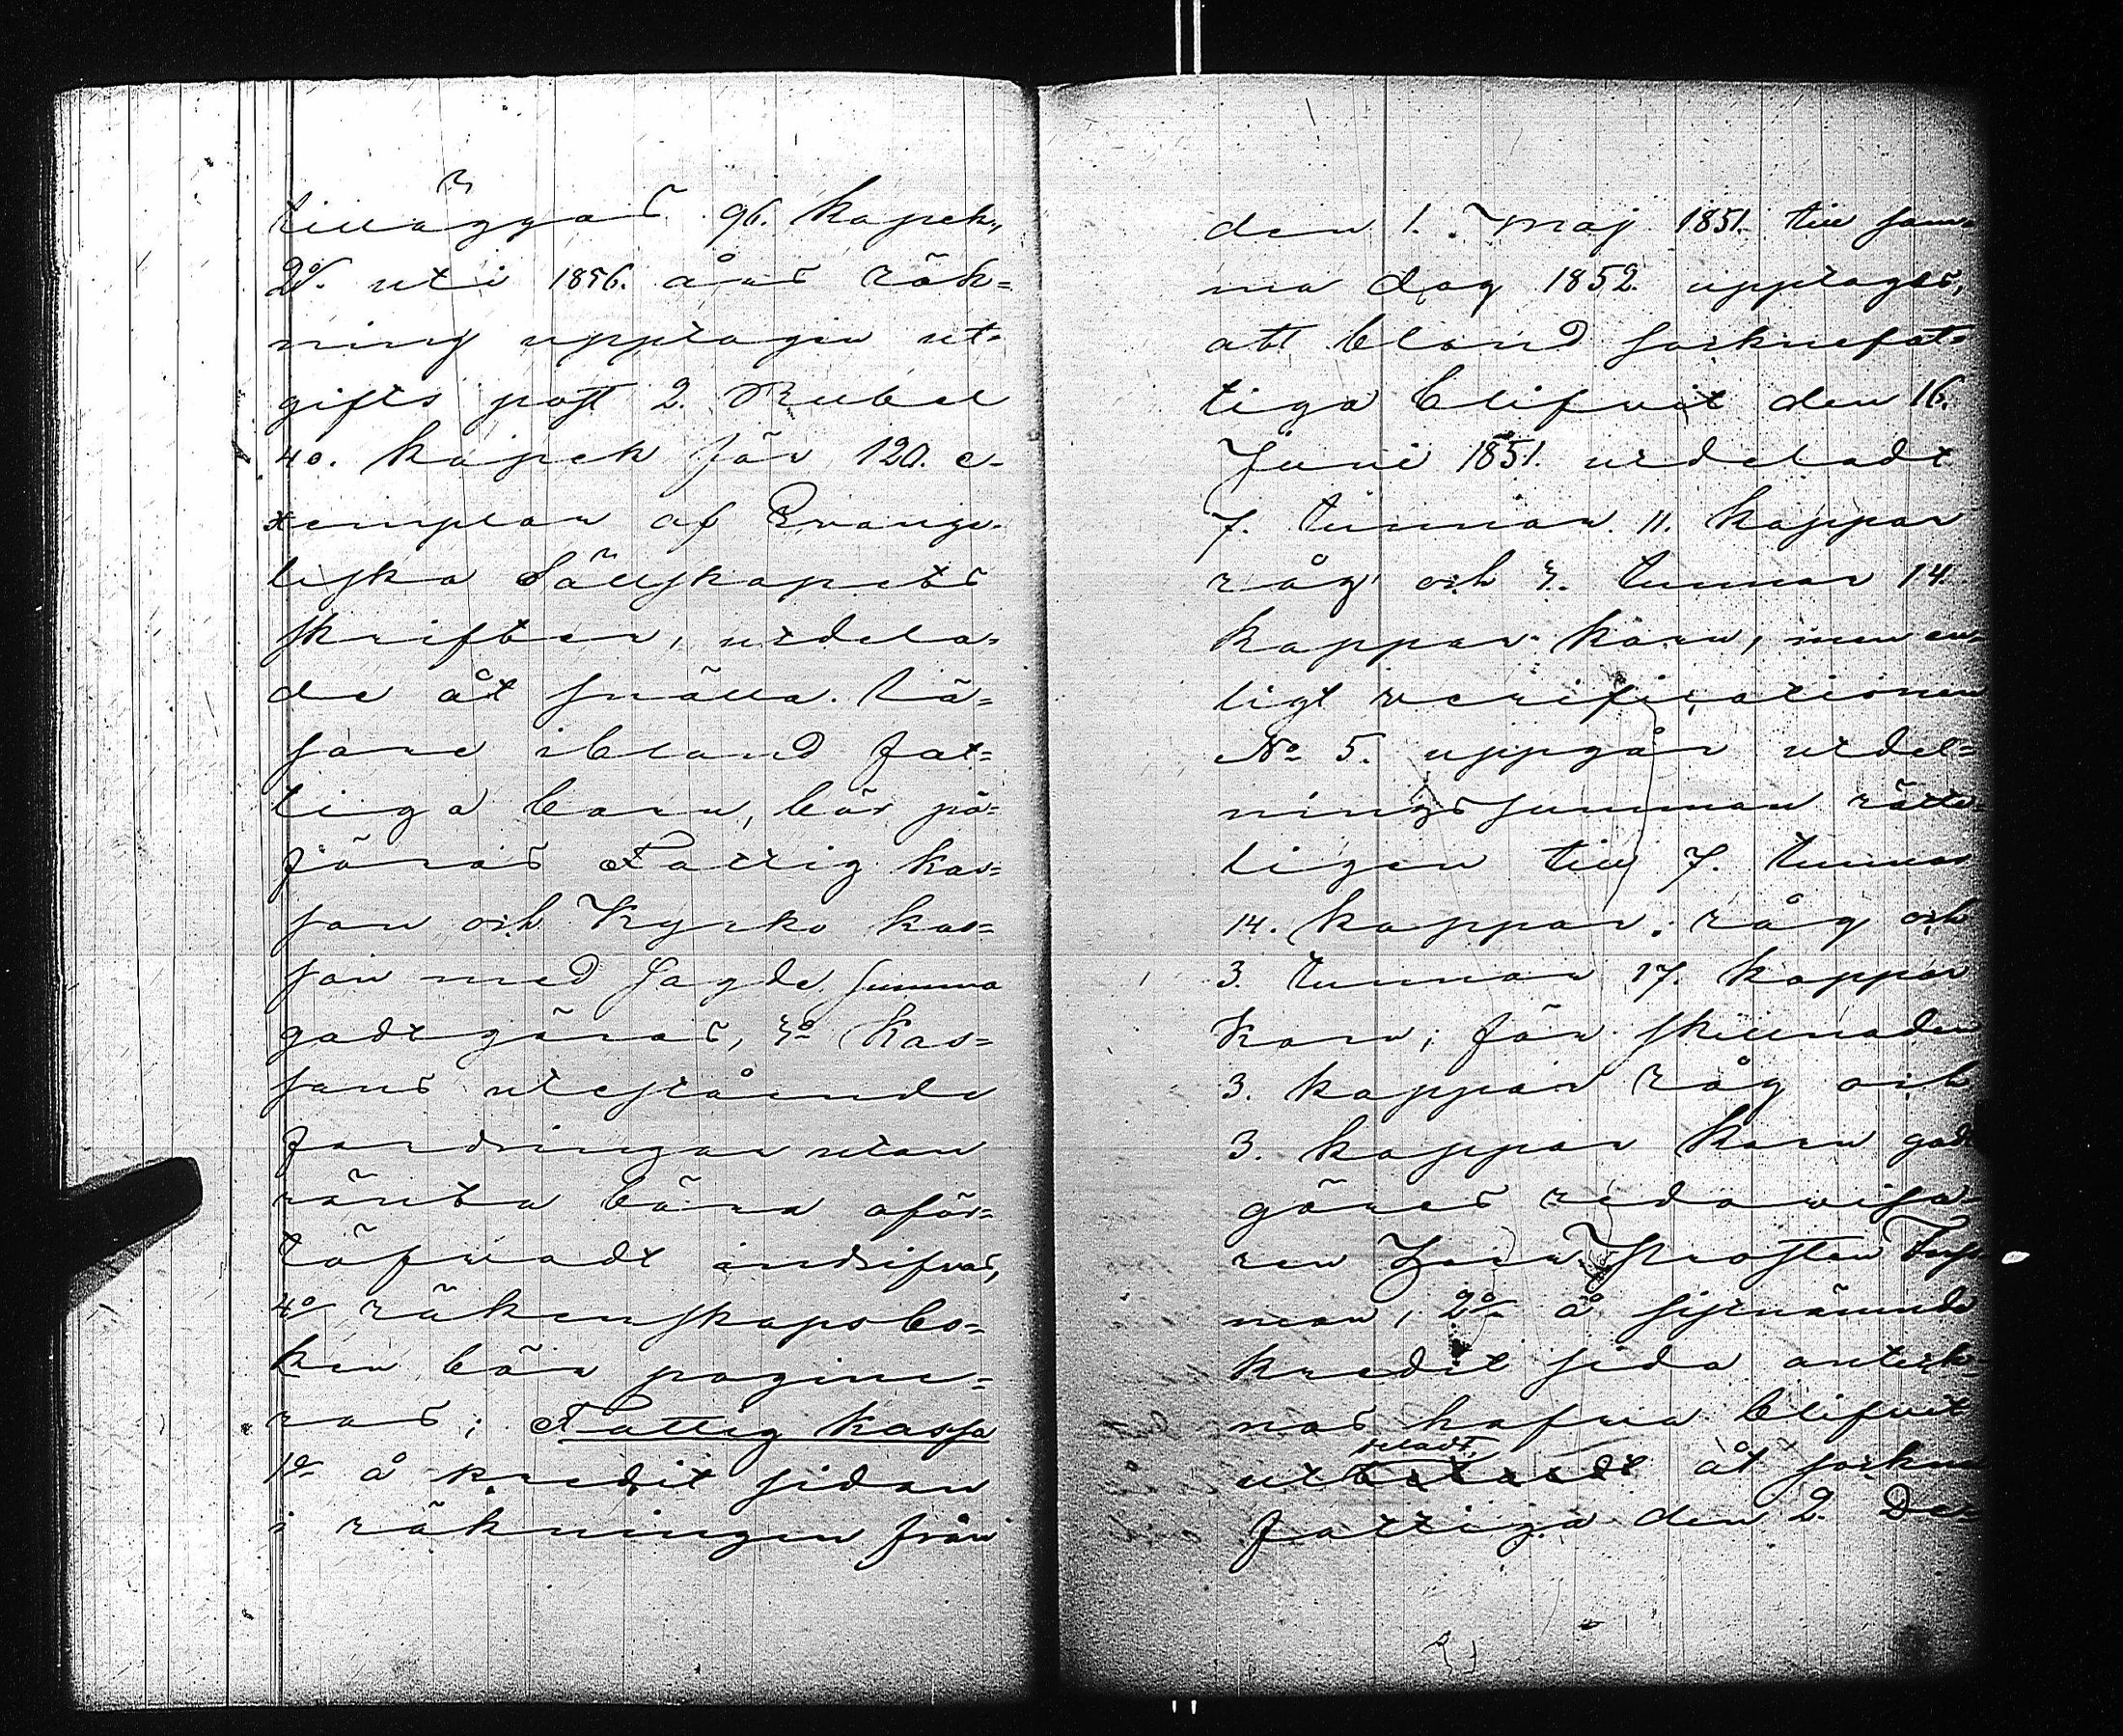 tilläggas 96. kopek.,
2o. uti 1856. års räk=
ning upptagin ut=
gifts post 2. Rubel
40. kopek för 120. e-
xemplar af Evange-
liska Sällskapets
skrifter, utdela=
de åt snälla lä=
sare ibland fat=
tiga barn, bör på=
föras Fattig kas=
san och Kyrko kas=
san med sagde summa
godtgöras, 3o Kas=
sans utestående
fordringar utan
ränta böra oför=
töfvadt indrifvas,
4o räkenskapsbo=
ken bör pagine=
ras; Fattig kassa
1o å kredit sidan
i räkningen från
den 1. Maj 1851. till sam=
ma dag 1852. upptages,
att bland sorknefat=
tiga blifvit den 16.
Junii 1851. utdeladt
7. tunnor 11. kappar
råg och 3. tunnor 14
kappar korn, men en=
ligt verificationen
No 5. uppgår utdel=
ningssumman rätte=
ligen till 7. tunnor
14. kappar råg och
3. tunnor 17. kappar
korn; för skillnaden
3. kappar råg och
3. kappar korn godt
göres redovisa=
ren Herr Prosten
man, 2o å sistnämnde
kredit sida anteck=
nas hafva blifvit
utdeladt åt sockne
fattiga den 2. De=